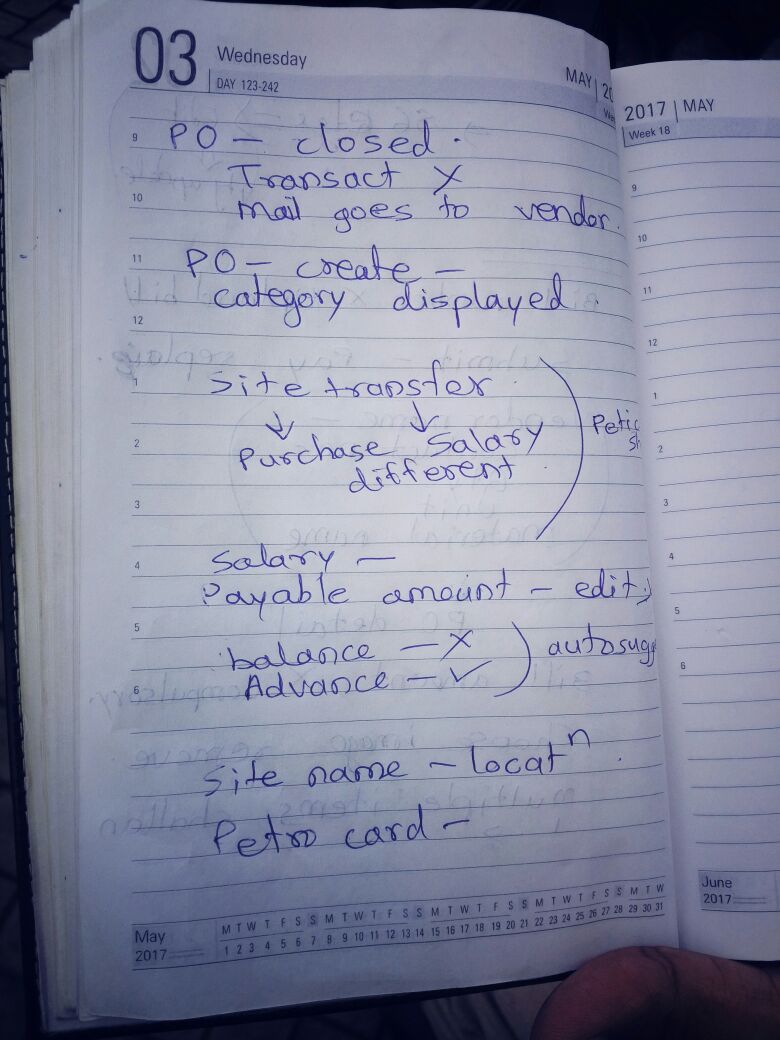 03 Wednesday
DAY 123-242
MAY | 20
9 PO - closed.
Transact X
10 mail goes to vendor.
11 PO - create -
category displayed.
12
1 site transfer
↓ ↓
2 Purchase Salary
different
3
4 Salary -
Payable amount - edit
5
balance - X
autosugg
6 Advance - ✓
Site name - locatⁿ.
Petro card -
May
2017
M T W T F S S M T W T F S S M T W T F S S M T W T F S S M T W
1 2 3 4 5 6 7 8 9 10 11 12 13 14 15 16 17 18 19 20 21 22 23 24 25 26 27 28 29 30 31
2017 | MAY
Week 18
9
10
11
12
1
2
3
4
5
6
June
2017